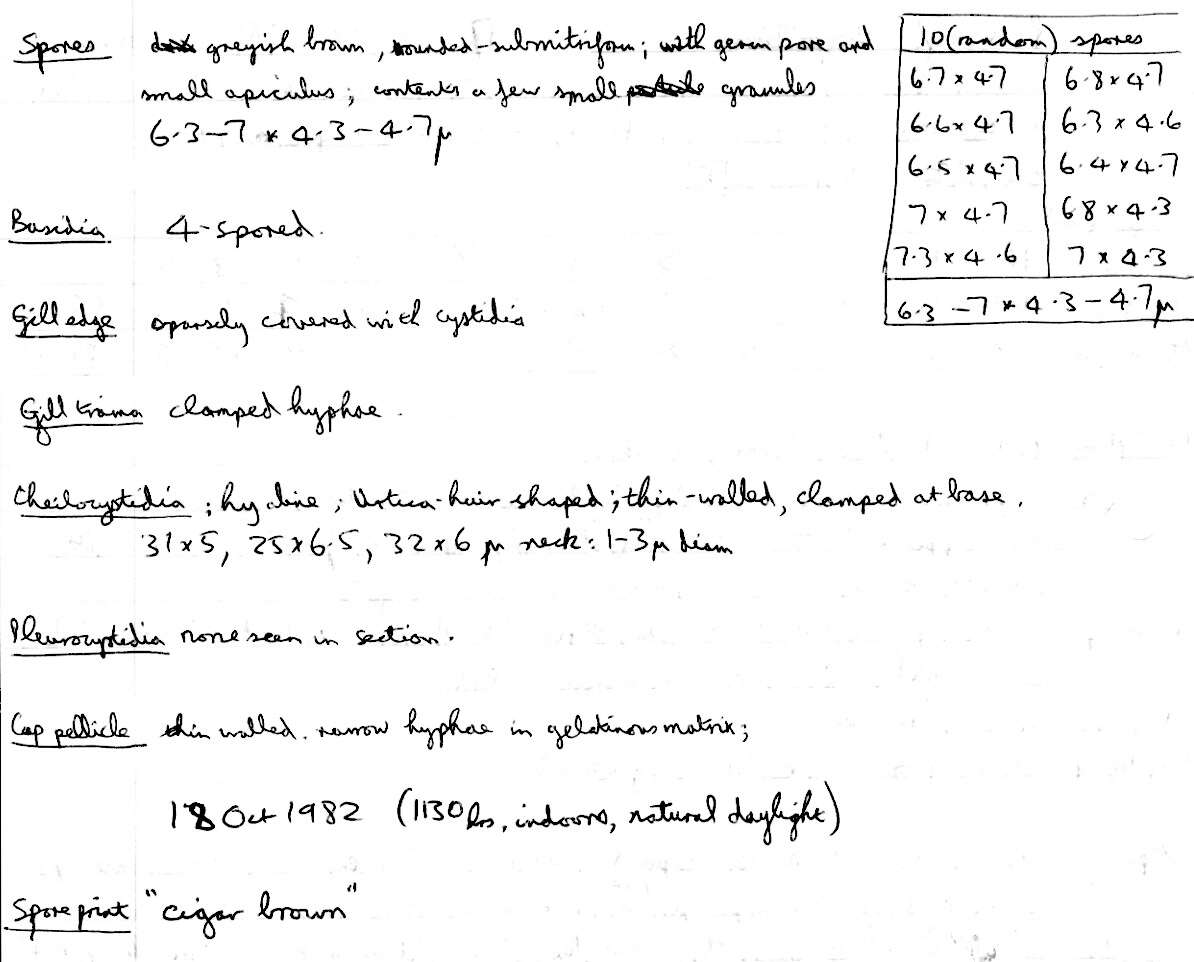 Spores greyish brown, rounded-submitriform; with germ pore and
small apiculus; contents a few small granules
6.3–7 x 4.3–4.7µ
10 (random) spores
6.7 x 4.7 6.8 x 4.7
6.6 x 4.7 6.3 x 4.6
6.5 x 4.7 6.4 x 4.7
7 x 4.7 6.8 x 4.3
7.3 x 4.6 7 x 4.3
6.3–7 x 4.3–4.7µ
Basidia 4-spored.
Gill edge sparsely covered with cystidia
Gill trama clamped hyphae.
Cheilocystidia; hyaline; Urtica-hair shaped; thin-walled, clamped at base.
31x5, 25x6.5, 32x6 µ neck: 1-3µ diam
Pleurocystidia none seen in section.
Cap pellicle thin walled. narrow hyphae in gelatinous matrix;
18 Oct 1982 (1130 hrs, indoors, natural daylight)
Spore print "cigar brown"